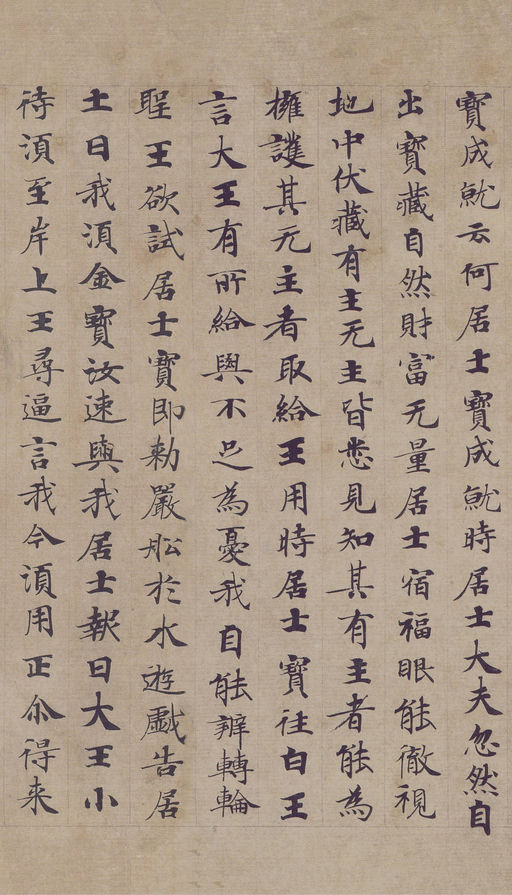 寶成就云何居士寶成就時居士大夫忽然自
出寶藏自然財富无量居士宿福眼能徹視
地中伏藏有主无主皆悉見知其有主者能為
擁護其无主者取給王用時居士寶往白王
言大王有所給與不足為憂我自能辦轉輪
聖王欲試居士寶即勅嚴舩於水遊戲告居
士曰我須金寶汝速與我居士報曰大王小
待須至岸上王尋逼言我今須用正尒得来